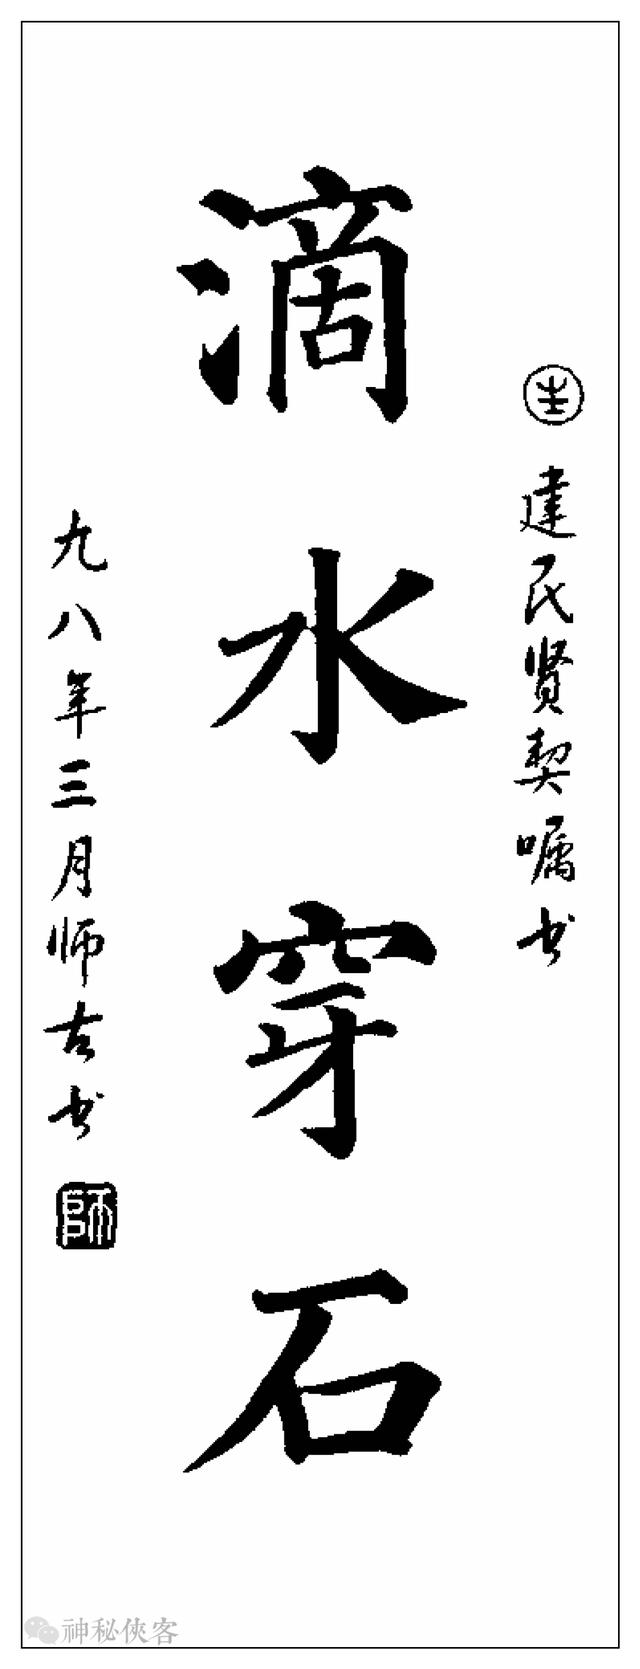 建民贤契嘱书
滴水穿石
九八年三月师古书
師
神秘侠客